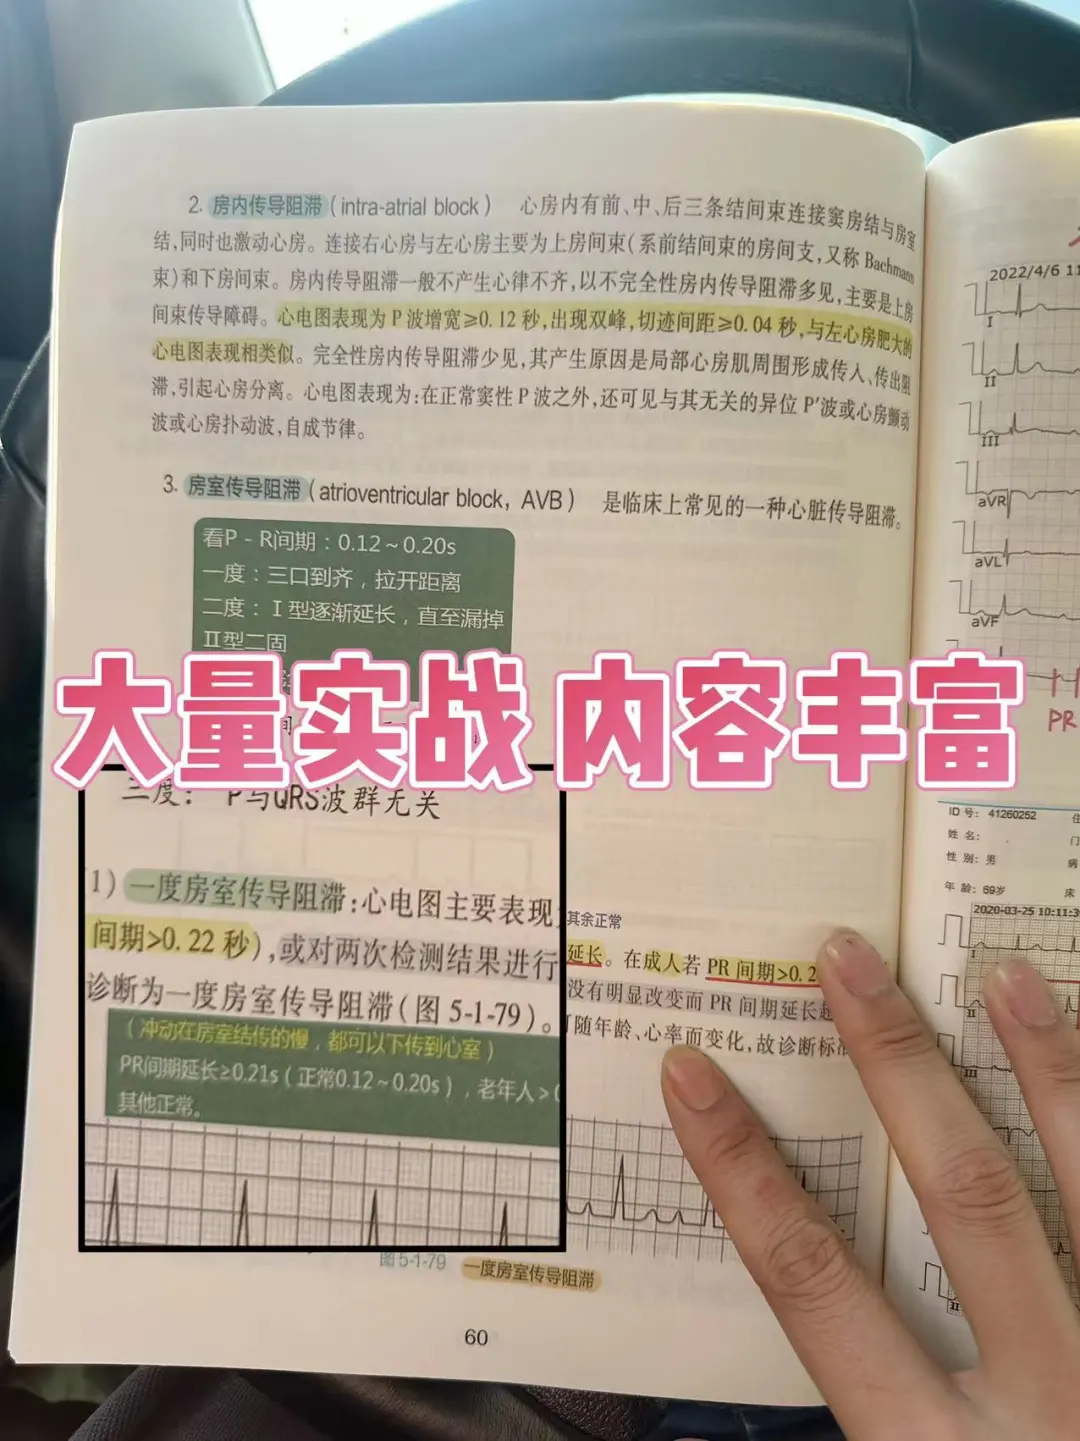 2. 房内传导阻滞(intra-atrial block) 心房内有前、中、后三条结间束连接窦房结与房室
结,同时也激动心房。连接右心房与左心房主要为上房间束(系前结间束的房间支,又称 Bachmann
束)和下房间束。房内传导阻滞一般不产生心律不齐,以不完全性房内传导阻滞多见,主要是上房
间束传导障碍。心电图表现为 P 波增宽≥0.12 秒,出现双峰,切迹间距≥0.04 秒,与左心房肥大的
心电图表现相类似。完全性房内传导阻滞少见,其产生原因是局部心房肌周围形成传入、传出阻
滞,引起心房分离。心电图表现为:在正常窦性 P 波之外,还可见与其无关的异位 P′波或心房颤动
波或心房扑动波,自成节律。
3. 房室传导阻滞(atrioventricular block, AVB) 是临床上常见的一种心脏传导阻滞。
看P-R间期:0.12~0.20s
一度:三口到齐,拉开距离
二度:Ⅰ型逐渐延长,直至漏掉
Ⅱ型二固
大量实战 内容丰富
三度: P与QRS波群无关
1)一度房室传导阻滞:心电图主要表现
间期>0.22 秒),或对两次检测结果进行
诊断为一度房室传导阻滞(图 5-1-79)。
(冲动在房室结传的慢,都可以下传到心室)
PR间期延长≥0.21s(正常0.12~0.20s),老年人>
其他正常。
其余正常
延长。在成人若 PR 间期>0.2
没有明显改变而 PR 间期延长
随年龄、心率而变化,故诊断标
图 5-1-79 一度房室传导阻滞
60
2022/4/6 11
I
II
III
aVR
aVL
aVF
PR
ID 号: 41260252
姓 名:
性 别:男
病
年 龄:69岁
床
2020-03-25 10:11:3
I
II
III
II